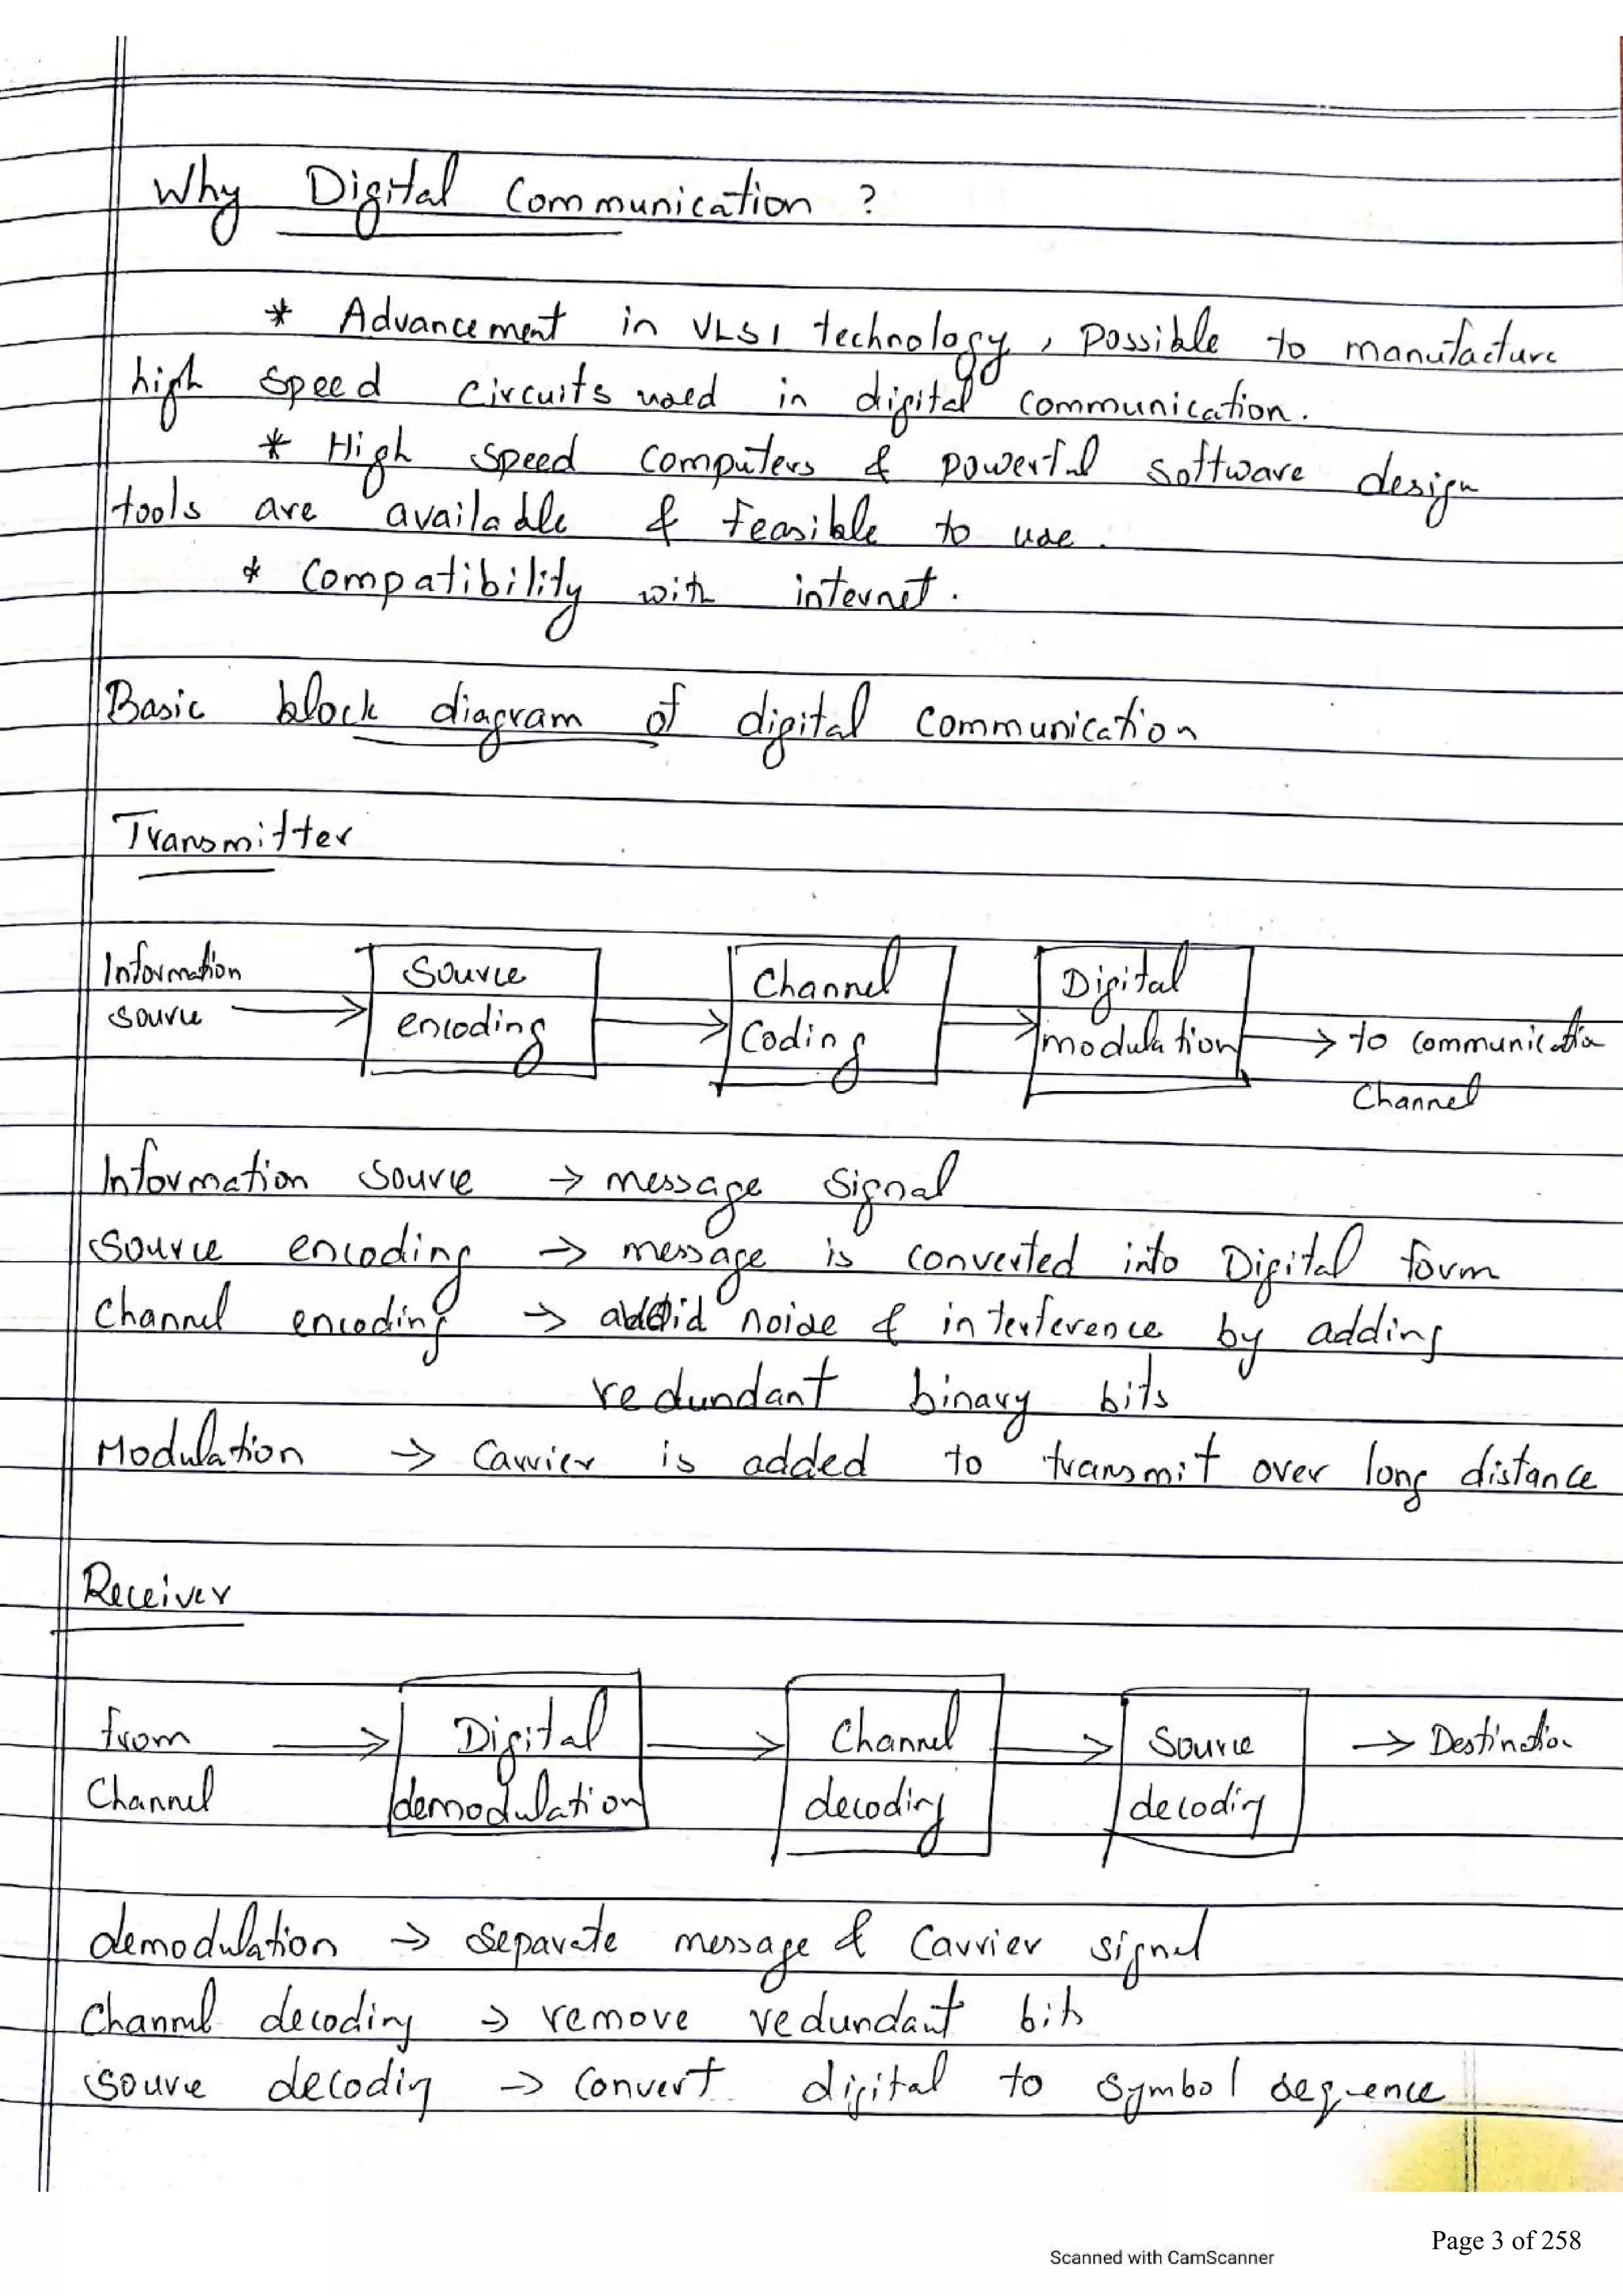 Why Digital Communication ?
* Advancement in VLSI technology, Possible to manufacture
high speed circuits used in digital communication.
* High speed computers & powerful software design
tools are available & feasible to use.
* Compatibility with internet.
Basic block diagram of digital communication
Transmitter
Information source → Source encoding → Channel Coding → Digital modulation → to communication Channel
Information source → message signal
Source encoding → message is converted into Digital form
Channel encoding → avoid noise & interference by adding
redundant binary bits
Modulation → Carrier is added to transmit over long distance
Receiver
from Channel → Digital demodulation → Channel decoding → Source decoding → Destination
demodulation → separate message & Carrier signal
Channel decoding → remove redundant bits
source decoding → Convert digital to symbol sequence
Page 3 of 258
Scanned with CamScanner